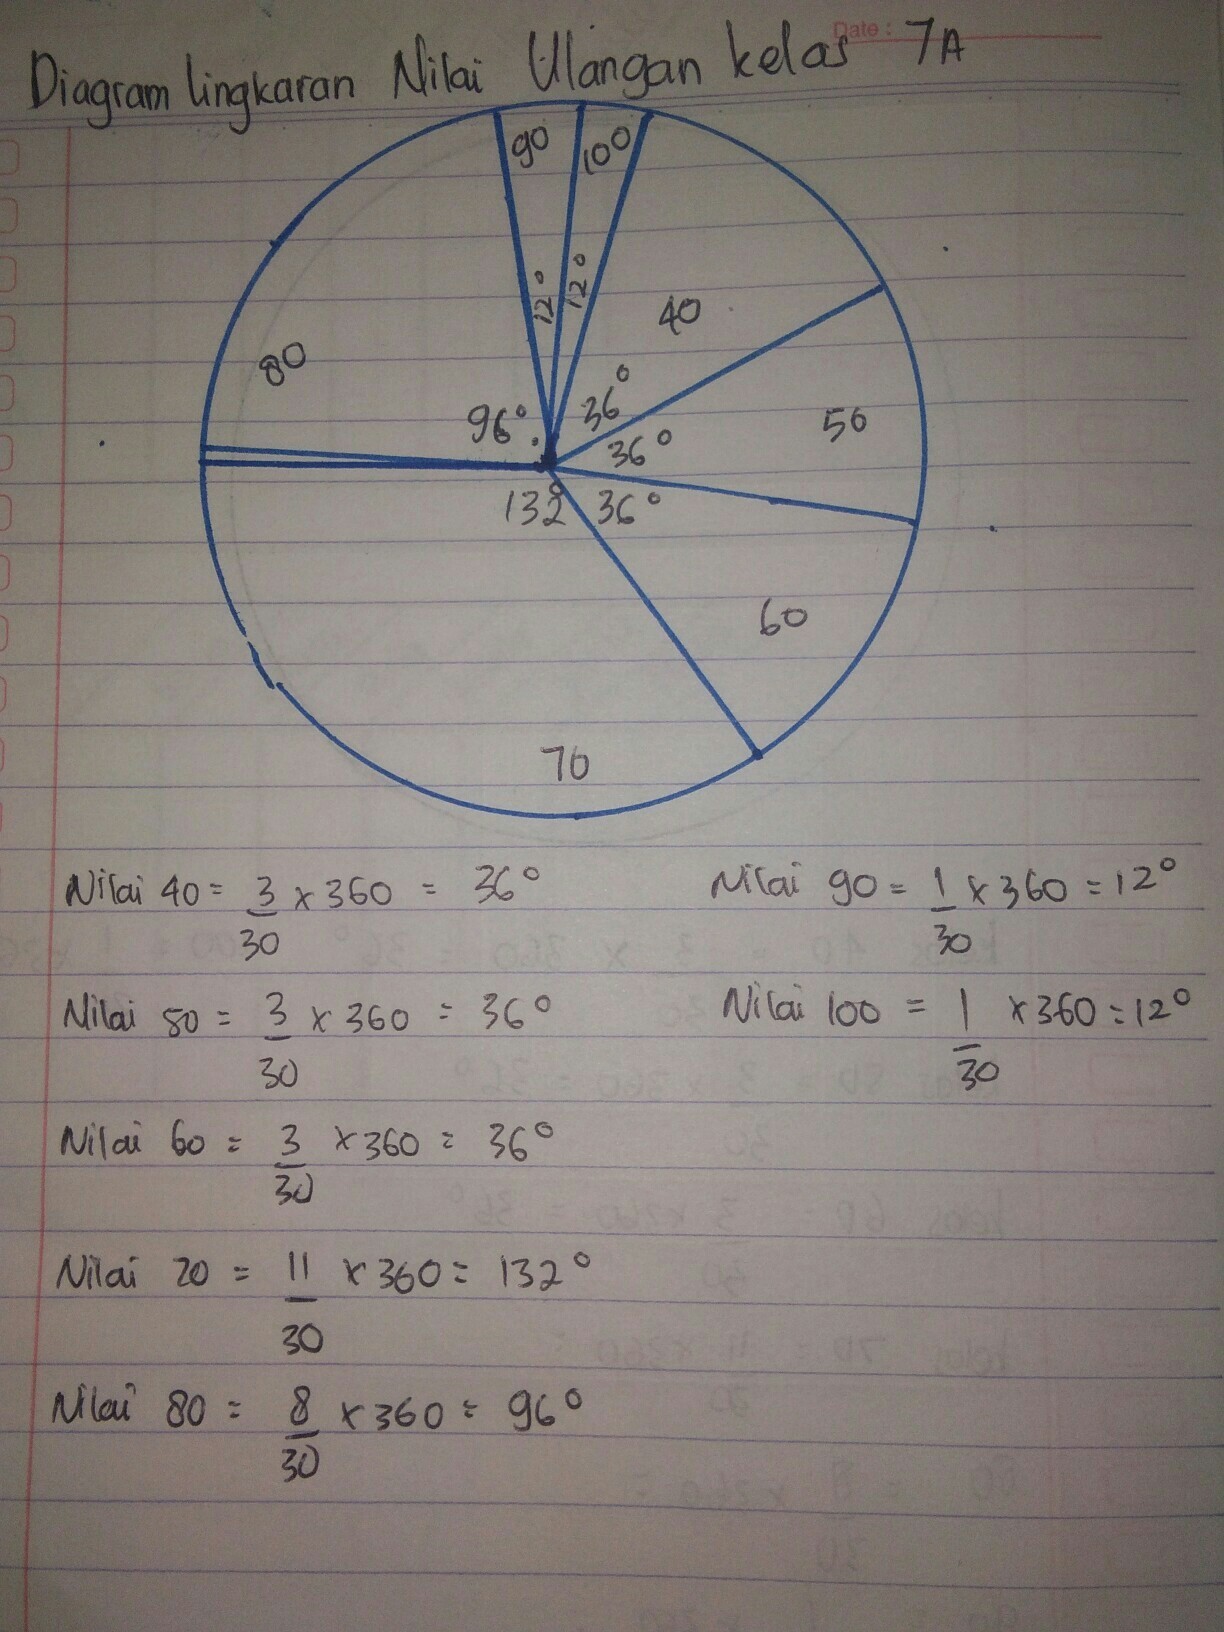 Date :
Diagram lingkaran Nilai Ulangan kelas 7A
90
100
12°
12°
40
80
36°
96°
50
36°
132°
36°
60
70
Nilai 40 = 3/30 x 360 = 36°
Nilai 90 = 1/30 x 360 = 12°
Nilai 50 = 3/30 x 360 = 36°
Nilai 100 = 1/30 x 360 = 12°
Nilai 60 = 3/30 x 360 = 36°
Nilai 70 = 11/30 x 360 = 132°
Nilai 80 = 8/30 x 360 = 96°